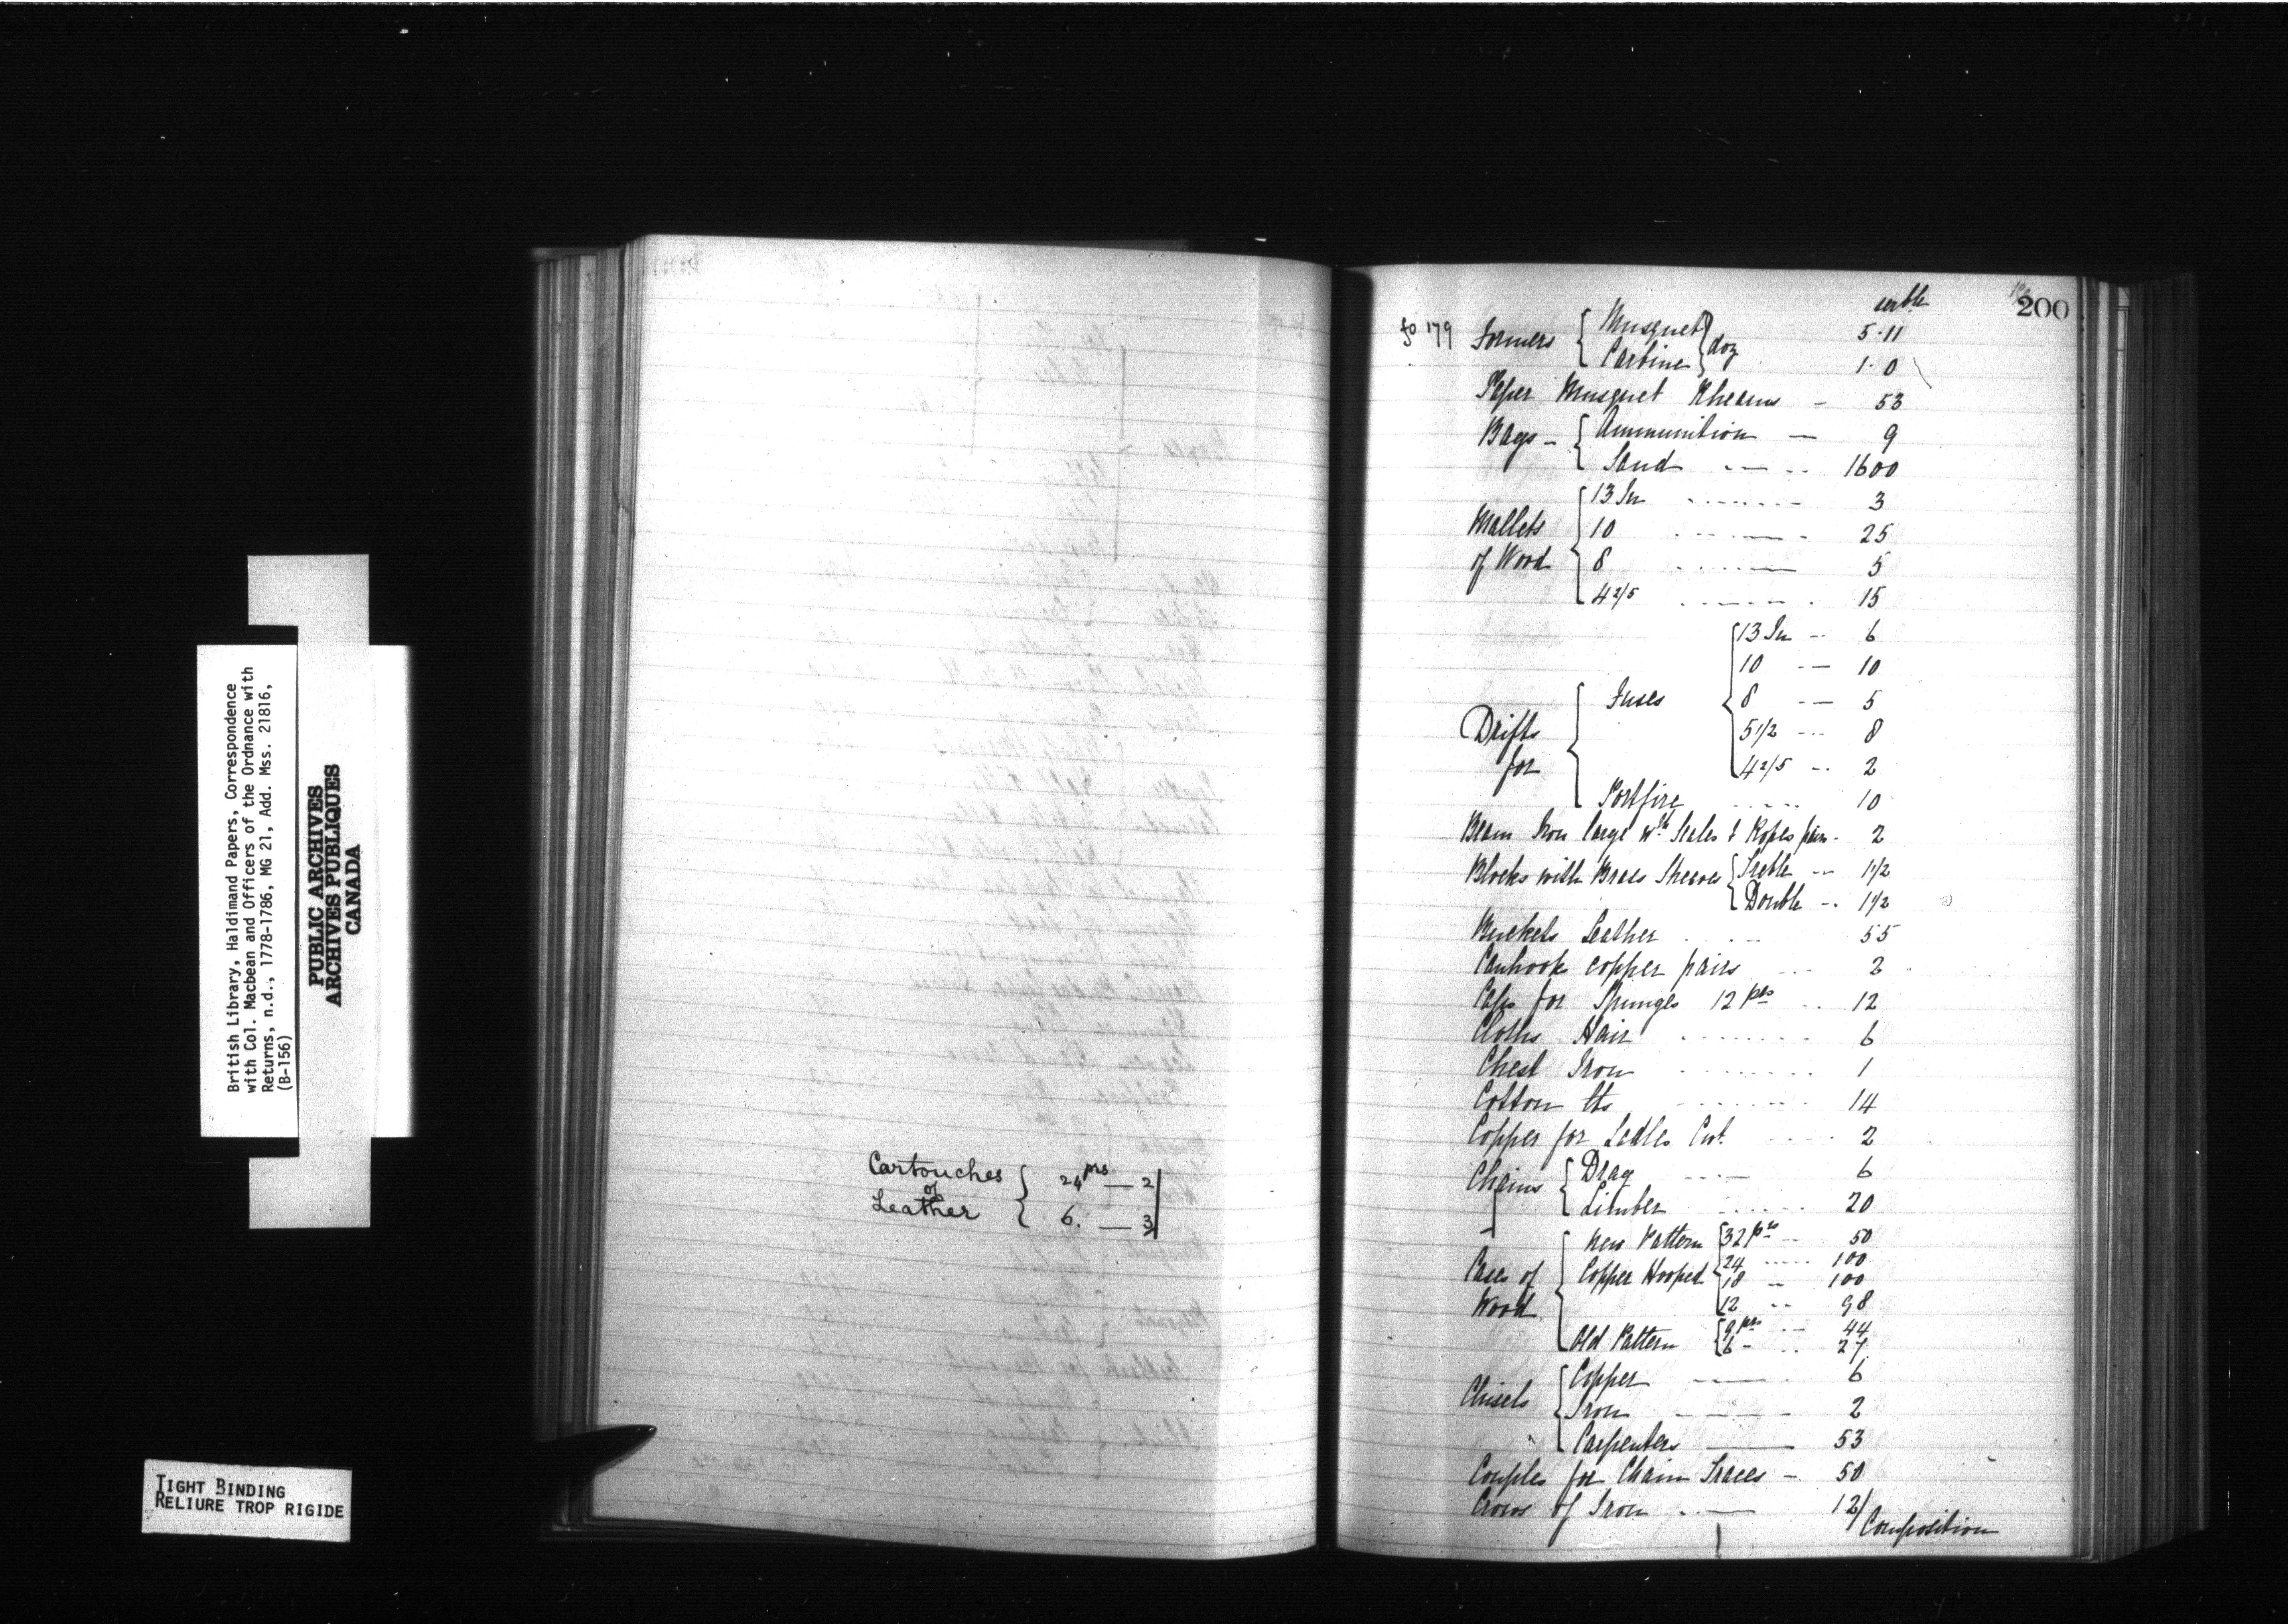 British Library, Haldimand Papers, Correspondence
with Col. Macbean and Officers of the Ordnance with
Returns, n.d., 1778-1786, MG 21, Add. Mss. 21816,
(B-156)
PUBLIC ARCHIVES
ARCHIVES PUBLIQUES
CANADA
TIGHT BINDING
RELIURE TROP RIGIDE
Cartouches of Leather { 24 prs — 2
6. — 3
200
serble
fo 179 Formers { Musquet } doz 5.11
Carbine 1.0
Paper Musquet Rheams - 53
Bags - { Ammunition — 9
Sand 1600
Mallets of Wood { 13 In 3
10 25
8 5
4 2/5 15
Drifts for { Fuses { 13 In 6
10 10
8 5
5 1/2 8
4 2/5 2
Portfire 10
Beam Iron large wth Scales & Ropes pair - 2
Blocks with Brass Sheaves { Treble 1 1/2
Double 1 1/2
Buckets Leather 55
Canhooks copper pairs 2
Caps for Spunges 12 prs 12
Cloths Hair 6
Chest Iron 1
Cotton lbs 14
Copper for Ladles Cwt. 2
Chains { Drag 6
Limber 20
Cases of Wood { New Pattern Copper Hooped { 32 prs 50
24 100
18 100
12 98
Old Pattern { 9 prs 44
6 27
Chisels { Copper 6
Iron 2
Carpenters 53
Couples for Chain Traces - 50
Crows of Iron 12/
Composition